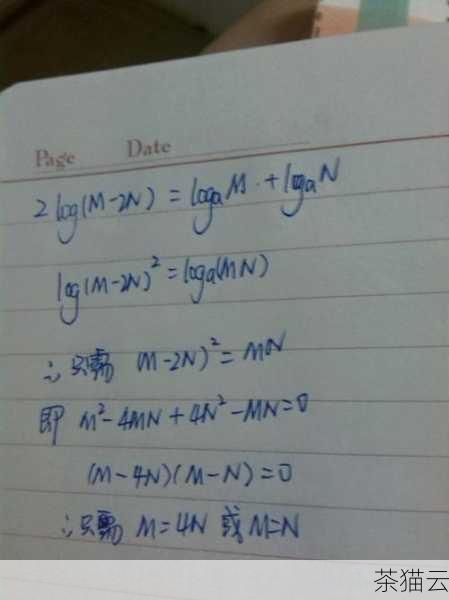 Page Date
2 log(M-2N) = logaM · + logaN
log(M-2N)² = loga(MN)
∴只需 (M-2N)² = MN
即 M²-4MN+4N²-MN=0
(M-4N)(M-N)=0
∴只需 M=4N 或 M=N
茶猫云